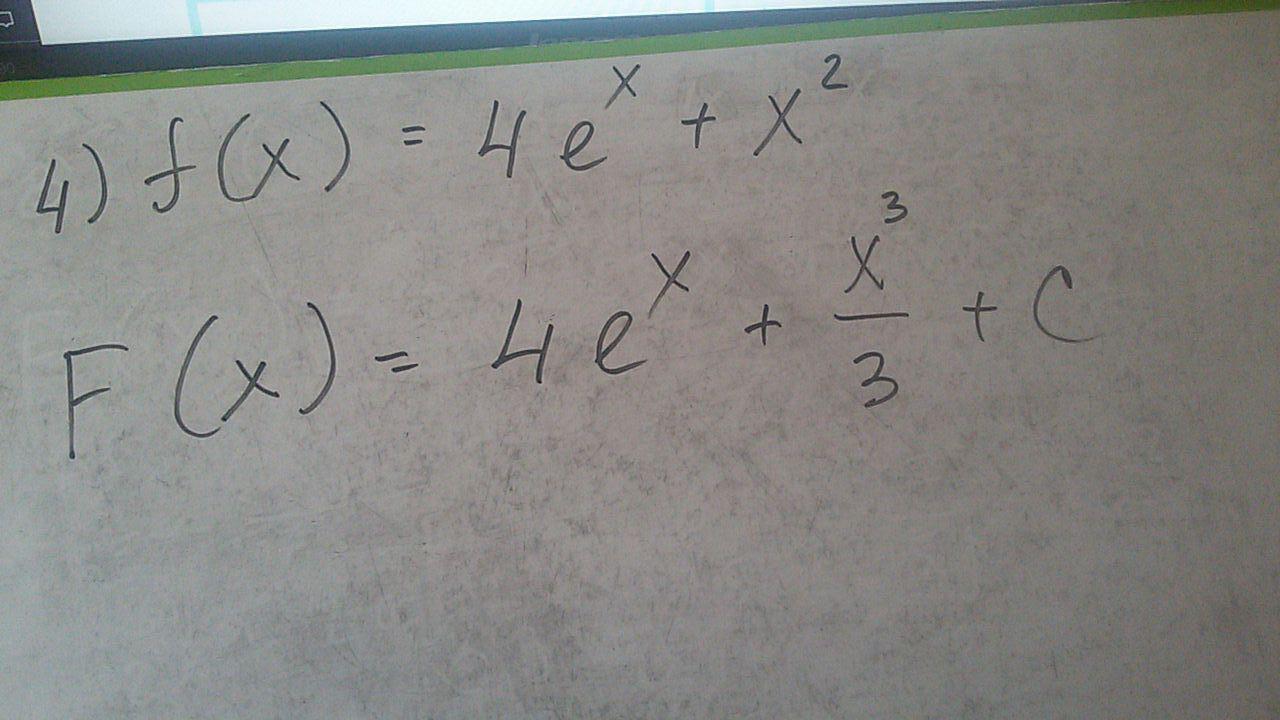 4) f(x) = 4e^x + x^2
F(x) = 4e^x + x^3/3 + C